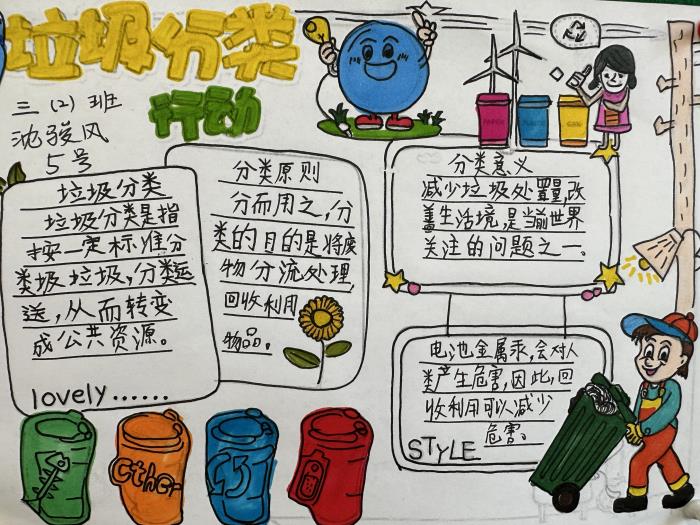 垃圾分类
行动
三(2)班
沈骏风
5号
垃圾分类
垃圾分类是指
按一定标准分
类圾垃圾,分类运
送,从而转变
成公共资源。
lovely......
分类原则
分而用之,分
类的目的是将废
物分流处理,
回收利用
物品。
分类意义
减少垃圾处置量,改
善生活境,是当前世界
关注的问题之一。
电池金属汞,会对人
类产生危害,因此,回
收利用可以减少
危害。
STYLE
Other